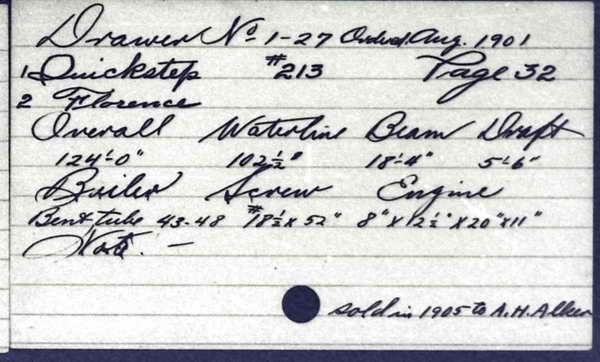 Drawer No 1-27 Ordered Aug. 1901
1 Quickstep #213 Page 32
2 Florence
Overall Waterline Beam Draft
124'-0" 102½" 18'-4" 5'-6"
Boiler Screw Engine
Bent tube 43-48 #18½ x 52" 8" x 12½" x 20" x 11"
Note. —
sold in 1905 to A.H. Alker